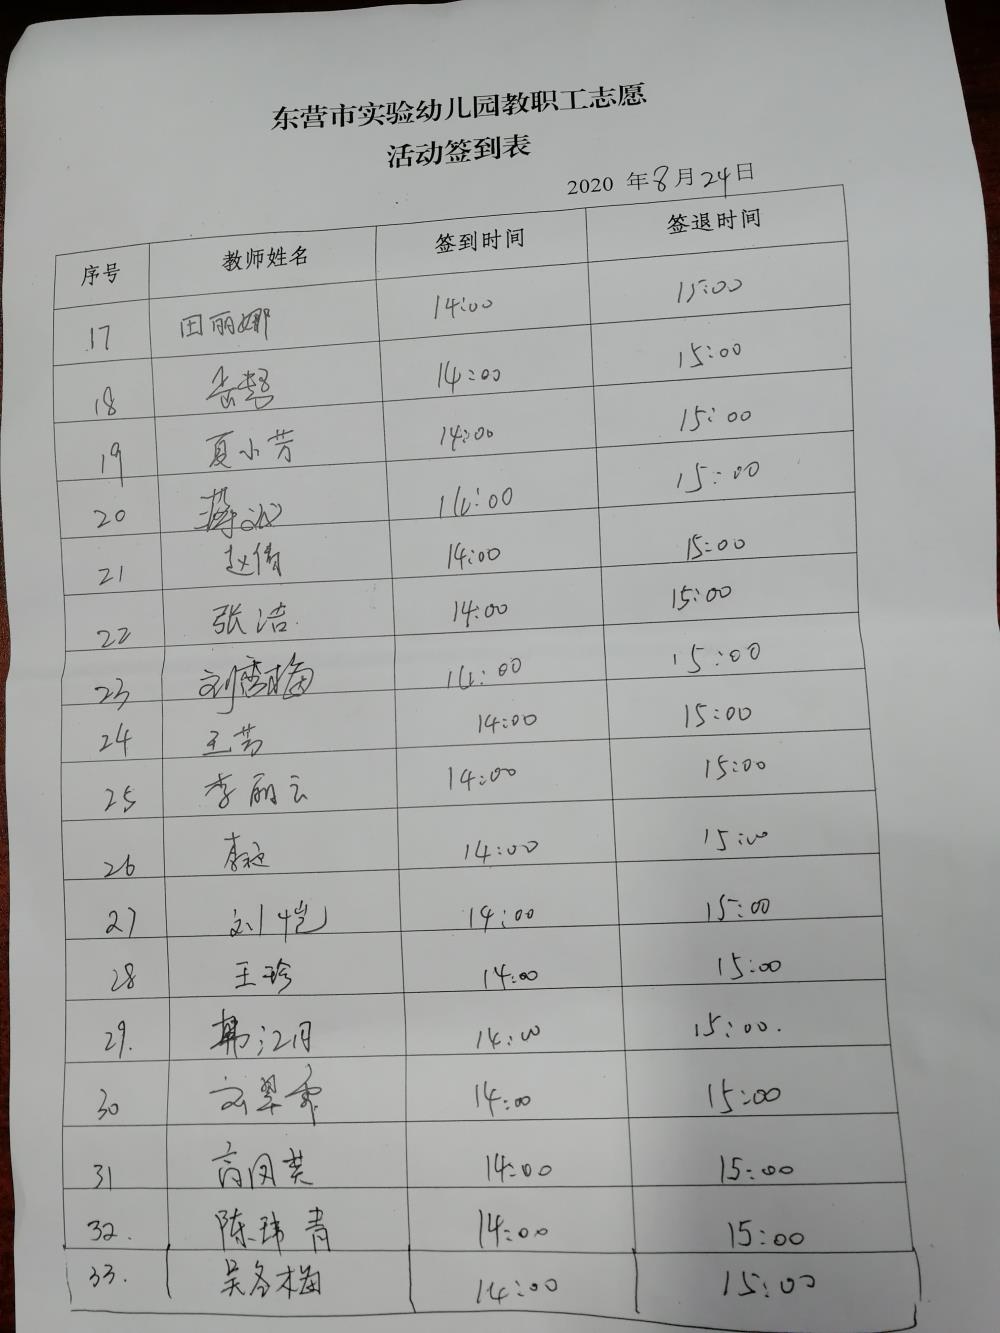 东营市实验幼儿园教职工志愿
活动签到表
2020 年8月24日
序号 教师姓名 签到时间 签退时间
17 田丽娜 14:00 15:00
18 14:00 15:00
19 夏小芳 14:00 15:00
20 14:00 15:00
21 赵倩 14:00 15:00
22 张洁 14:00 15:00
23 刘秀梅 14:00 15:00
24 王芳 14:00 15:00
25 李丽云 14:00 15:00
26 14:00 15:00
27 刘恺 14:00 15:00
28 王珍 14:00 15:00
29. 韩江月 14:00 15:00.
30 14:00 15:00
31 高凤英 14:00 15:00
32. 陈玮青 14:00 15:00
33. 吴冬梅 14:00 15:00